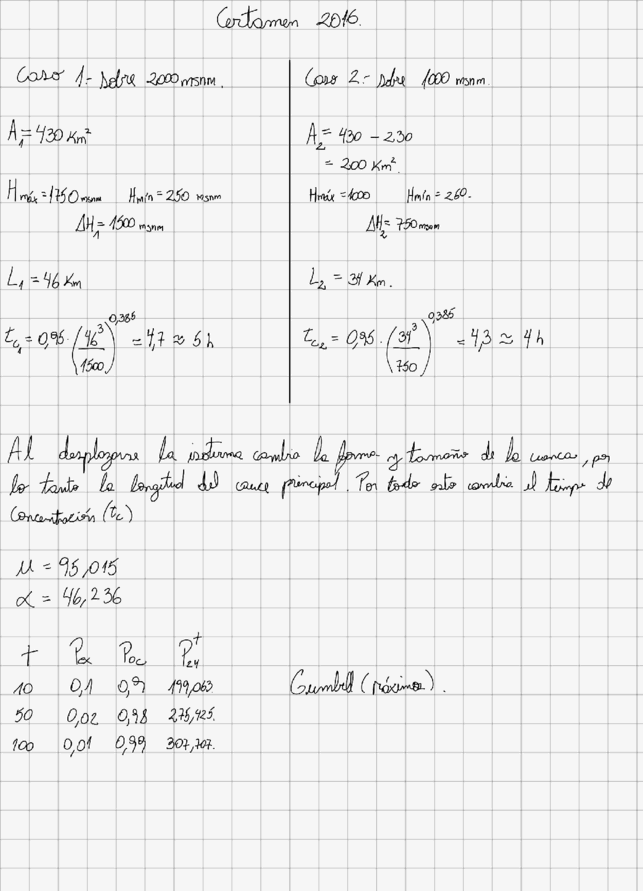 Certamen 2016.
Caso 1.- sobre 2000 msnm.
A₁ = 430 Km²
Hmáx = 1750 msnm Hmín = 250 msnm
ΔH₁ = 1500 msnm
L₁ = 46 Km
tc₁ = 0,95 · (46³/1500)^0,385 = 4,7 ≈ 5 h
Caso 2.- sobre 1000 msnm.
A₂ = 430 - 230
= 200 Km².
Hmáx = 1000 Hmín = 250.
ΔH₂ = 750 msnm
L₂ = 34 Km.
tc₂ = 0,95 · (34³/750)^0,385 = 4,3 ≈ 4 h
Al desplazarse la isoterma cambia la forma y tamaño de la cuenca, por
lo tanto la longitud del cauce principal. Por todo esto cambia el tiempo de
Concentración (tc)
μ = 95,015
α = 46,236
T Pex Poc P₂₄ᵀ
10 0,1 0,9 199,063.
50 0,02 0,98 275,425.
100 0,01 0,99 307,707.
Gumbell (máximos).